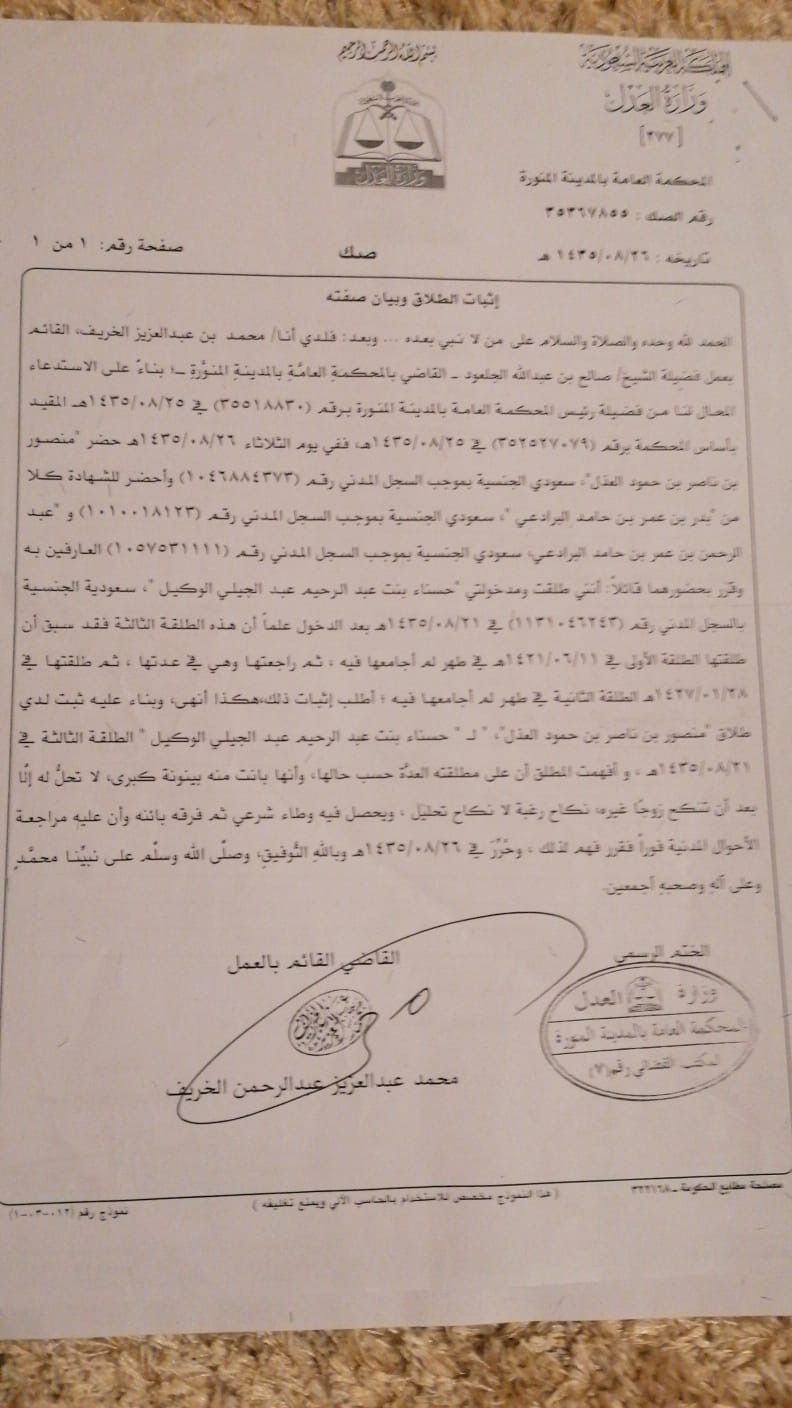 بسم الله الرحمن الرحيم
المملكة العربية السعودية
وزارة العدل
[٢٧٧]
المحكمة العامة بالمدينة المنورة
رقم الصك : ٣٥٣٦٧٨٥٥
تاريخه : ١٤٣٥/٠٨/٢٦ هـ
وزارة العدل
صك
صفحة رقم: ١ من ١
إثبات الطلاق وبيان صفته
الحمد لله وحده والصلاة والسلام على من لا نبي بعده ... وبعد: فلدي أنا/ محمد بن عبدالعزيز الخريف، القائم
بعمل فضيلة الشيخ/ صالح بن عبدالله الجلعود - القاضي بالمحكمةِ العامَّةِ بالمدينةِ المنوَّرةِ -؛ بناءً على الاستدعاء
المحال لنا من فضيلة رئيس المحكمة العامة بالمدينة المنورة برقم (٣٥٥١٨٨٣٠) في ١٤٣٥/٠٨/٢٥هـ المقيد
بأساس المحكمة برقم (٣٥٢٥٢٧٠٧٩) في ١٤٣٥/٠٨/٢٥هـ، ففي يوم الثلاثاء ١٤٣٥/٠٨/٢٦هـ حضر "منصور
بن ناصر بن حمود العذل"، سعودي الجنسية بموجب السجل المدني رقم (١٠٤٦٨٨٤٣٧٣) وأحضر للشهادة كلا
من "بدر بن عمر بن حامد البرادعي "، سعودي الجنسية بموجب السجل المدني رقم (١٠١٠٠١٨١٢٣) و "عبد
الرحمن بن عمر بن حامد البرادعي، سعودي الجنسية بموجب السجل المدني رقم (١٠٥٧٥٣١١١١) العارفين به
وقرر بحضورهما قائلاً: أنني طلقت ومدخولتي "حسناء بنت عبد الرحيم عبد الجيلي الوكيل "، سعودية الجنسية
بالسجل المدني رقم (١١٣١٠٤٦٢٤٣) في ١٤٣٥/٠٨/٢١هـ بعد الدخول علماً أن هذه الطلقة الثالثة فقد سبق أن
طلقتها الطلقة الأولى في ١٤٢١/٠٦/١١هـ في طهر لم أجامعها فيه ، ثم راجعتها وهي في عدتها ، ثم طلقتها في
١٤٢٧/٠١/٢٨هـ الطلقة الثانية في طهر لم أجامعها فيه ؛ أطلب إثبات ذلك،هكذا أنهى، وبناء عليه ثبت لدي
طلاق "منصور بن ناصر بن حمود العذل"، " لـ " حسناء بنت عبد الرحيم عبد الجيلي الوكيل " الطلقة الثالثة في
١٤٣٥/٠٨/٢١هـ ، و أفهمت المطلق أن على مطلقته العدَّة حسب حالها، وأنها بانت منه بينونة كبرى، لا تحلُّ له إلَّا
بعد أن تنكح زوجًا غيره، نكاح رغبة لا نكاح تحليل ، ويحصل فيه وطاء شرعي ثم فرقه بائنه وأن عليه مراجعة
الأحوال المدنية فوراً فقرر فهم لذلك ، وحُرِّرَ في ١٤٣٥/٠٨/٢٦هـ وباللهِ التَّوفيقِ، وصلَّى الله وسلَّم على نبيِّنا محمَّدٍ
وعلى آلهِ وصحبهِ أجمعين.
الختم الرسمي
القاضي القائم بالعمل
وزارة العدل
المحكمة العامة بالمدينة المنورة
المكتب القضائي رقم (٧)
محمد عبدالعزيز عبدالرحمن الخريف
مصلحة مطابع الحكومة - ٣٢٢١٦٨
( هذا النموذج مخصص للاستخدام بالحاسب الآلي ويمنع تغليفه )
نموذج رقم (٠١٢-٠٣-١)